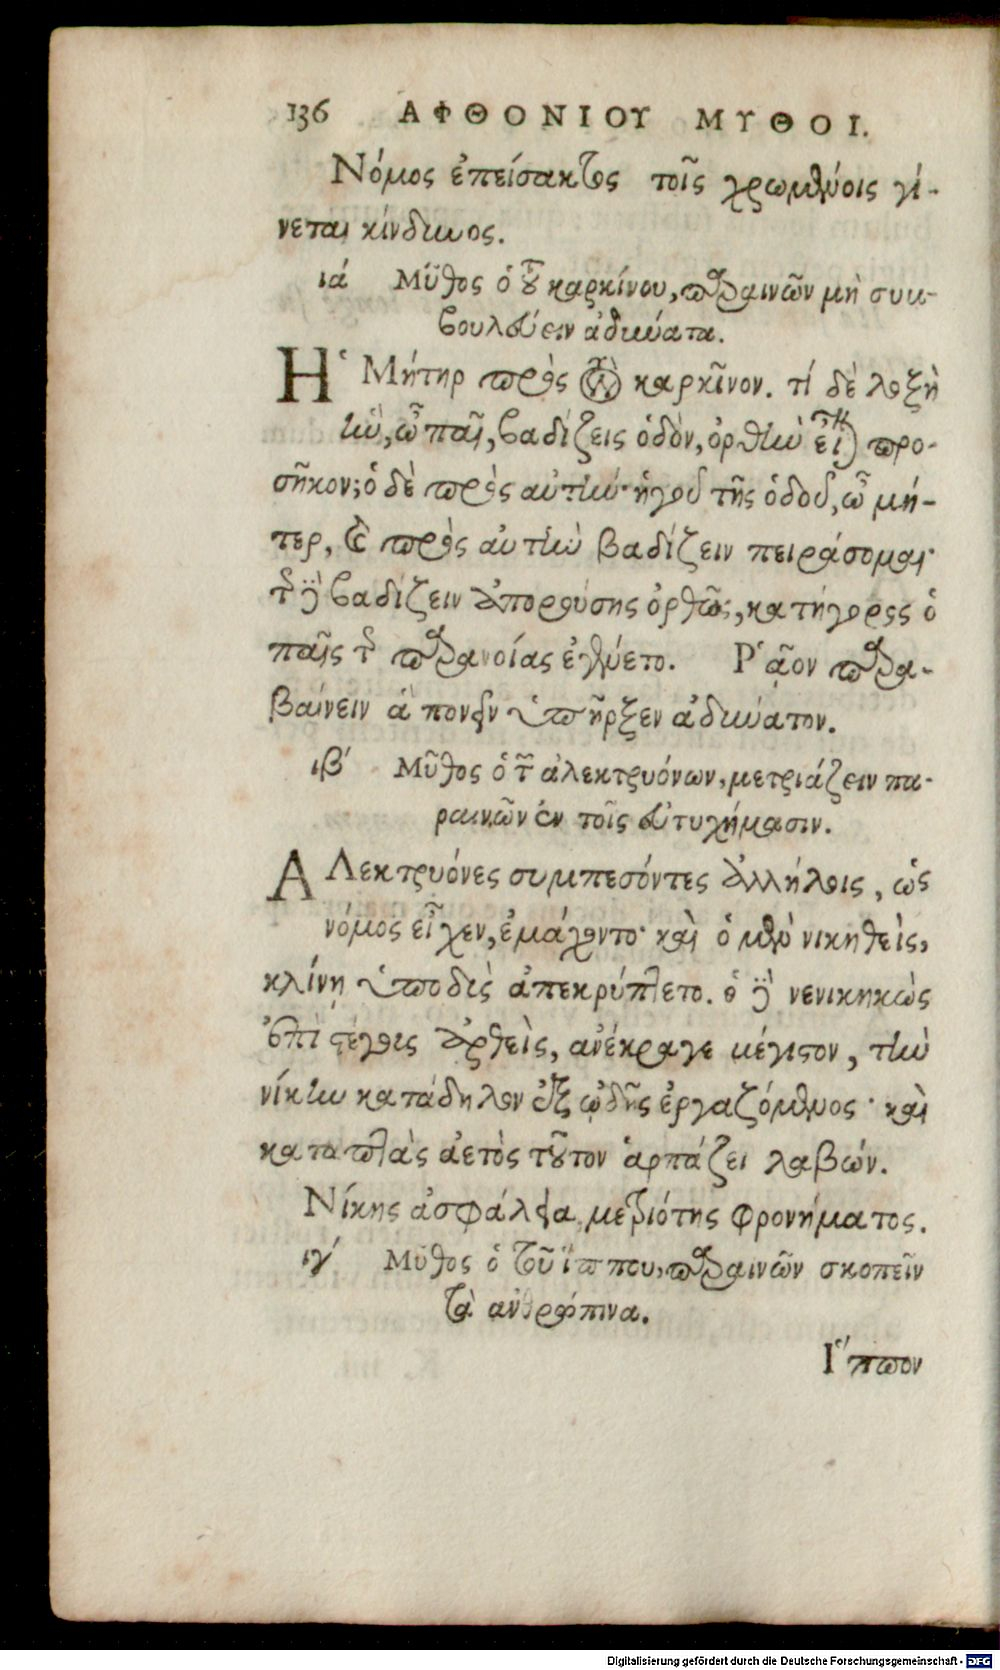 136 ΑΦΘΟΝΙΟΥ ΜΥΘΟΙ.
Νόμος ἐπείσακτος τοῖς χρωμένοις γί-
νεται κίνδυνος.
ιά Μῦθος ὁ τοῦ καρκίνου, παραινῶν μὴ συμ-
βουλεύειν ἀδύνατα.
Ἡ Μήτηρ πρὸς τὸν καρκῖνον. τί δὲ λοξὴ
τὴν, ὦ παῖ, βαδίζεις ὁδὸν, ὀρθὴν εἶναι προ-
σῆκον; ὁ δὲ πρὸς αὐτήν· ἡγοῦ τῆς ὁδοῦ, ὦ μή-
τερ, καὶ πρὸς αὐτὴν βαδίζειν πειράσομαι·
τῆς δὲ βαδίζειν ἀπορούσης ὀρθῶς, κατήγορος ὁ
παῖς τῆς παρανοίας ἐγένετο. Ῥᾷον παρα-
βαίνειν ἅ πονεῖν ὑπῆρξεν ἀδύνατον.
ιβ΄ Μῦθος ὁ τῶν ἀλεκτρυόνων, μετριάζειν πα-
ραινῶν ἐν τοῖς εὐτυχήμασιν.
ΑΛεκτρυόνες συμπεσόντες ἀλλήλοις, ὡς
νόμος εἶχεν, ἐμάχοντο· καὶ ὁ μὲν νικηθεὶς,
κλίνῃ ὑποδὺς ἀπεκρύπτετο. ὁ δὲ νενικηκὼς
ἐπὶ στέγοις ἀρθεὶς, ἀνέκραγε μέγιστον, τὴν
νίκην κατάδηλον ἐξ ᾠδῆς ἐργαζόμενος· καὶ
καταπτὰς ἀετὸς τοῦτον ἁρπάζει λαβών.
Νίκης ἀσφάλεια, μετριότης φρονήματος.
ιγ΄ Μῦθος ὁ τοῦ ἵππου, παραινῶν σκοπεῖν
τὰ ἀνθρώπινα.
Ἵππον
Digitalisierung gefördert durch die Deutsche Forschungsgemeinschaft - DFG